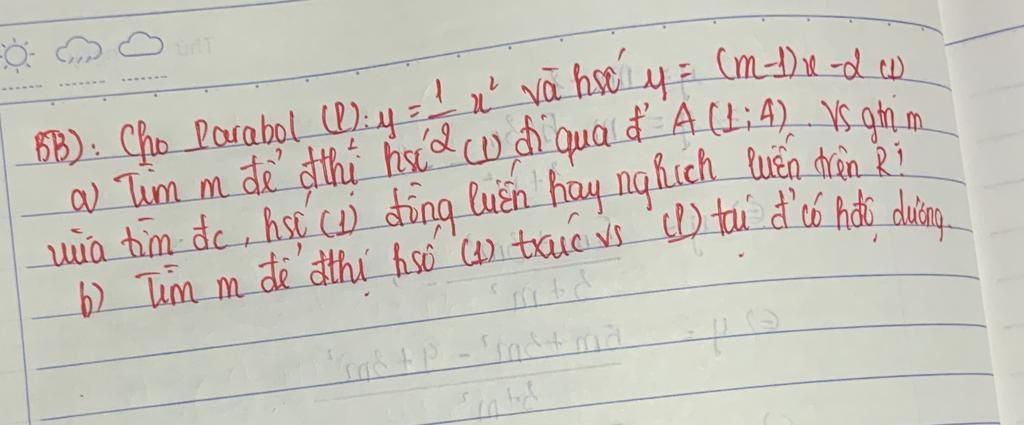 BB): Cho Parabol (P): y = 1/2 x² và hsố y = (m-1)x - 2 (1)
a) Tìm m để đthị hsố (1) đi qua đ' A (1; 4). Vs gtri m
vừa tìm đc, hsố (1) đồng biến hay nghịch biến trên R?
b) Tìm m để đthị hsố (1) txúc vs (P) tại đ' có hđộ dương.